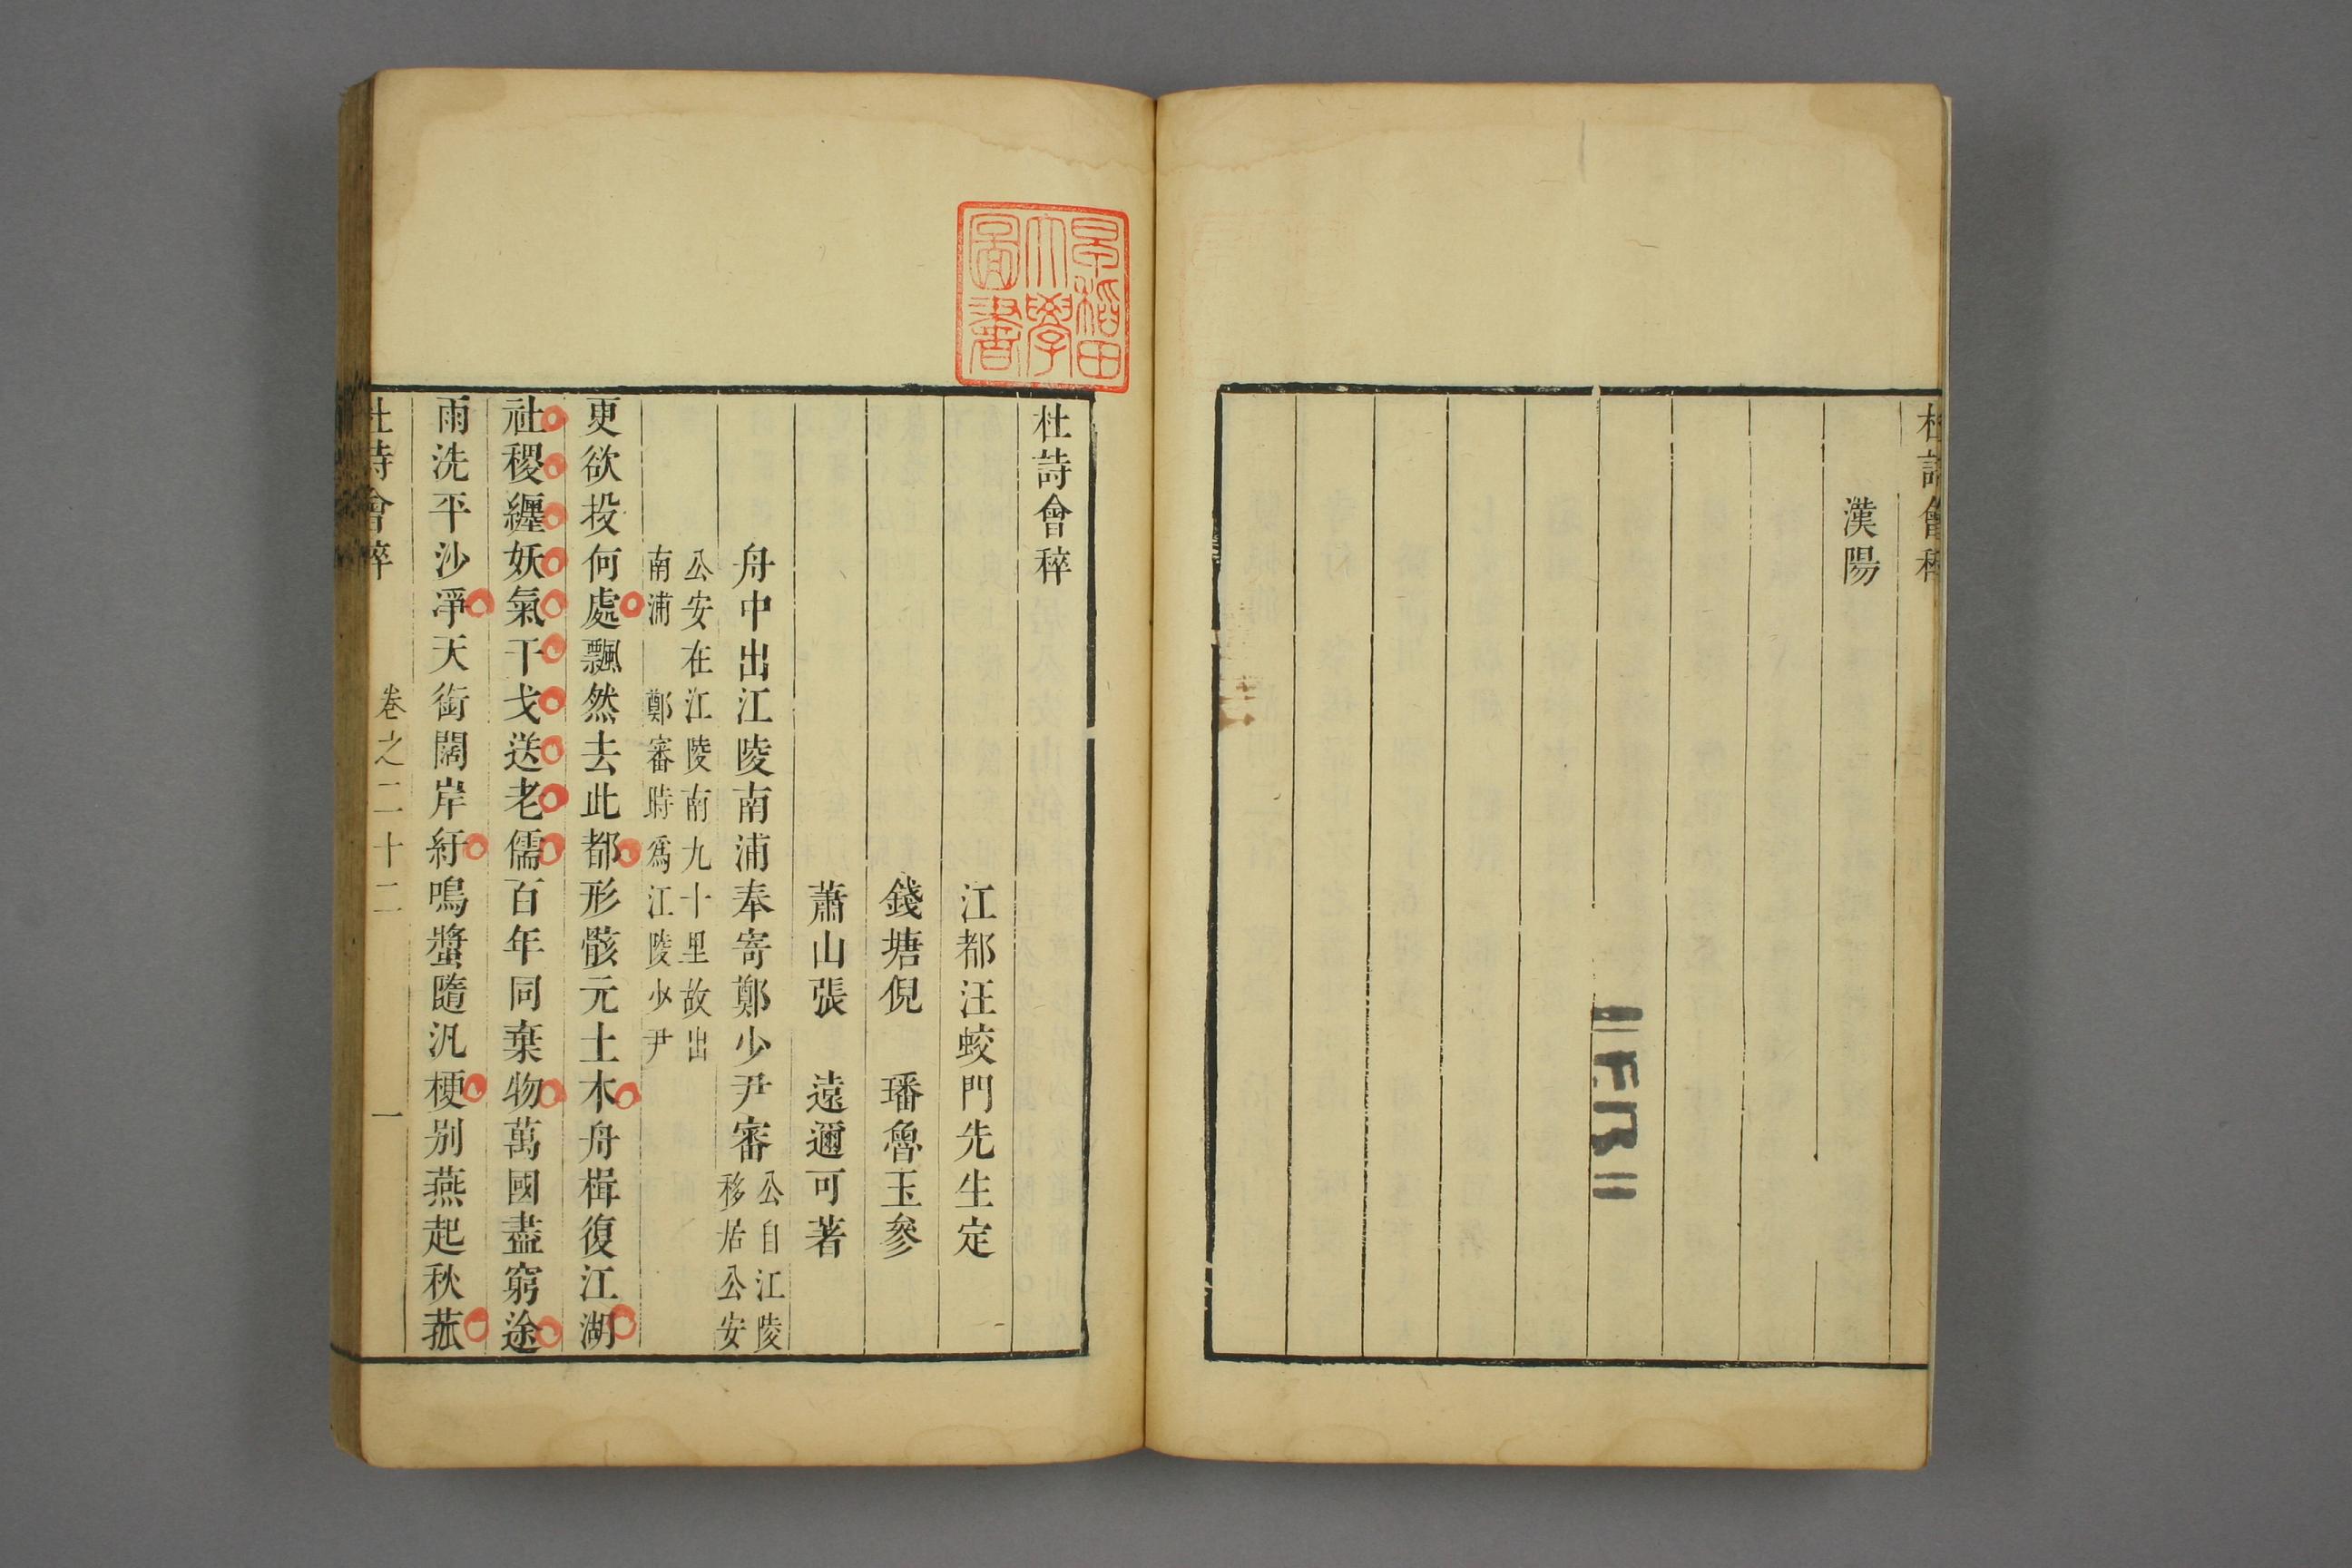 杜詩會稡
漢陽
早稻田
大學
圖書
杜詩會稡
江都汪蛟門先生定
錢塘倪　璠魯玉參
蕭山張　遠邇可著
舟中出江陵南浦奉寄鄭少尹審公自江陵移居公安
公安在江陵南九十里故出
南浦　鄭審時爲江陵少尹
更欲投何處飄然去此都形骸元土木舟楫復江湖
社稷纏妖氣干戈送老儒百年同棄物萬國盡窮途
雨洗平沙淨天銜闊岸紆鳴螿隨汎梗別燕起秋菰
杜詩會稡　卷之二十二　一